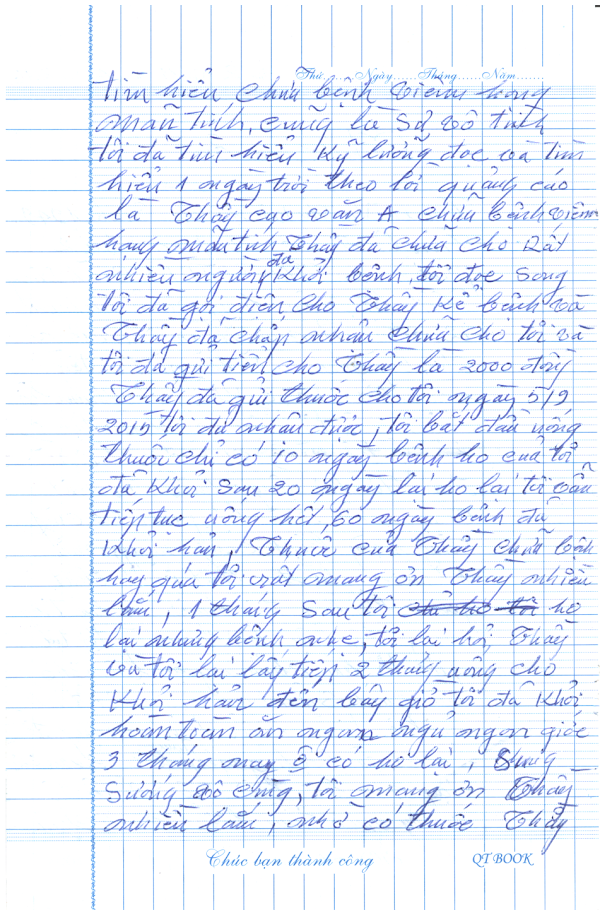 Thứ......Ngày......Tháng......Năm......
tìm hiểu chữa bệnh viêm họng
mãn tính, cũng là sự vô tình
tôi đã tìm hiểu kỹ lưỡng đọc và tìm
hiểu 1 ngày trời theo lời quảng cáo
là Thầy cao văn A chữa bệnh viêm
họng mãn tính Thầy đã chữa cho Rất
nhiều người đã Khỏi bệnh, tôi đọc song
tôi đã gọi điện cho Thầy Kể bệnh và
Thầy đã chấp nhận chữa cho tôi và
tôi đã gửi tiền cho Thầy là 2000 đồng
Thầy đã gửi thuốc cho tôi ngày 5/9
2015 tôi đã nhận được, tôi bắt đầu uống
thuốc chỉ có 10 ngày bệnh ho của tôi
đã Khỏi sau 20 ngày lại ho lại tôi vẫn
tiếp tục uống hết, 60 ngày bệnh đã
Khỏi hẳn, Thuốc của Thầy chữa bệnh
hay quá tôi rất mang ơn Thầy nhiều
lắm, 1 tháng sau tôi ho
lại nhưng bệnh nhẹ, tôi lại hỏi Thầy
và tôi lại lấy tiếp 2 tháng uống cho
Khỏi hẳn đến bây giờ tôi đã Khỏi
hoàn toàn ăn ngon ngủ ngon giấc
3 tháng nay ô có ho lại, Sung
Sướng vô cùng, tôi mang ơn Thầy
nhiều lắm, nhờ có thuốc Thầy
Chúc bạn thành công QT BOOK